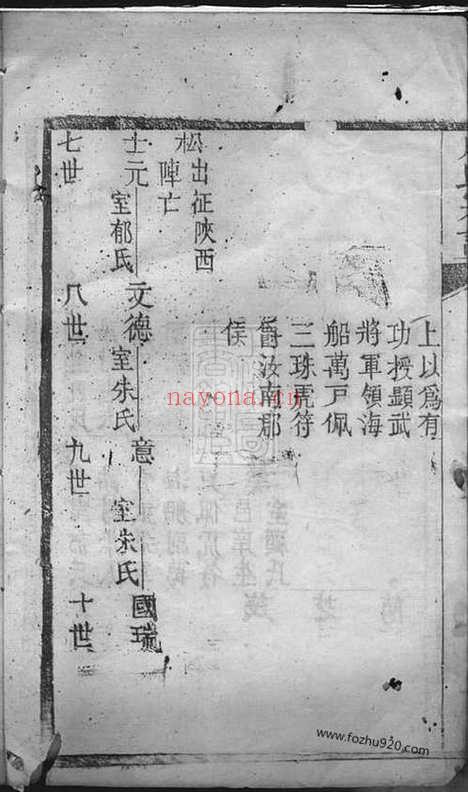 上以爲有
功授顯武
將軍領海
船萬戸佩
三珠虎符
爵汝南郡
侯
松出征陝西
陣亡
士元
室郁氏
文德
室朱氏
意
室朱氏
國瑞
七世
八世
九世
十世
nayona.cn
www.fozhu920.com